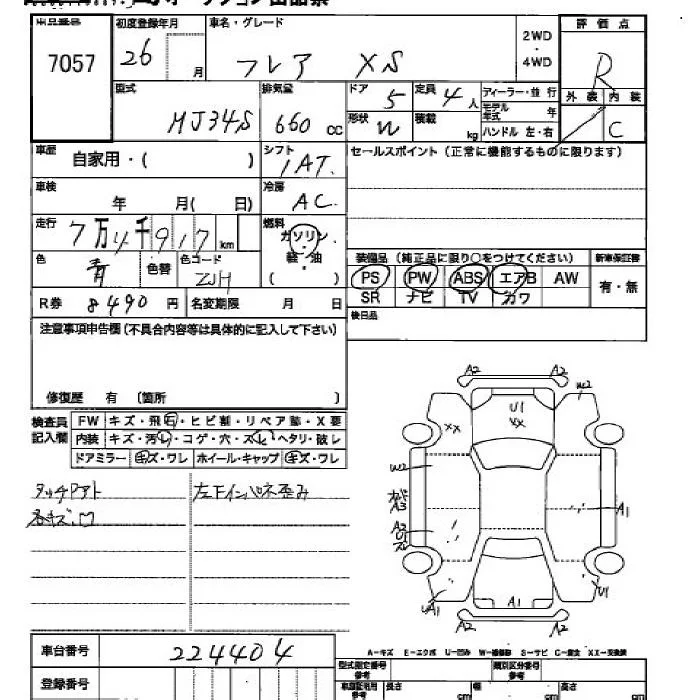 7057
初度登録年月
26
月
車名・グレード
フレア XS
2WD
・
4WD
評価点
R
外装 内装
C
型式
MJ34S
排気量
660 cc
ドア
5
定員
4 人
形状
W
積載
kg
ディーラー・並行
モデル年式 年
ハンドル 左・右
車歴
自家用・( )
シフト
IAT
セールスポイント(正常に機能するものに限ります)
車検
年 月( 日)
冷房
AC
走行
7万4千917km
燃料
ガソリン
・
軽・油
( )
色
青
色替
色コード
ZJH
装備品(純正品に限り○をつけてください)
新車保証書
PS PW ABS エアB AW
SR ナビ TV カワ
有・無
R券 8490円
名変期限 月 日
後日品
注意事項申告欄(不具合内容等は具体的に記入して下さい)
修復歴 有 〔箇所 〕
検査員記入欄
FW キズ・飛石・ヒビ割・リペア跡・X要
内装 キズ・汚レ・コゲ・穴・スレ・ヘタリ・破レ
ドアミラー キズ・ワレ ホイール・キャップ キズ・ワレ
タッチアト
各キズ凹
左下インパネ歪み
A2 A2
W2
U1
XX
XX
W2
A3
A2
A1
A1
U1
A1
A2 A2
A-キズ E-エクボ U-凹み W-補修跡 S-サビ C-腐食 XX-交換済
車台番号
224404
登録番号
型式指定番号
類別区分番号
長さ cm
幅 cm
高さ cm